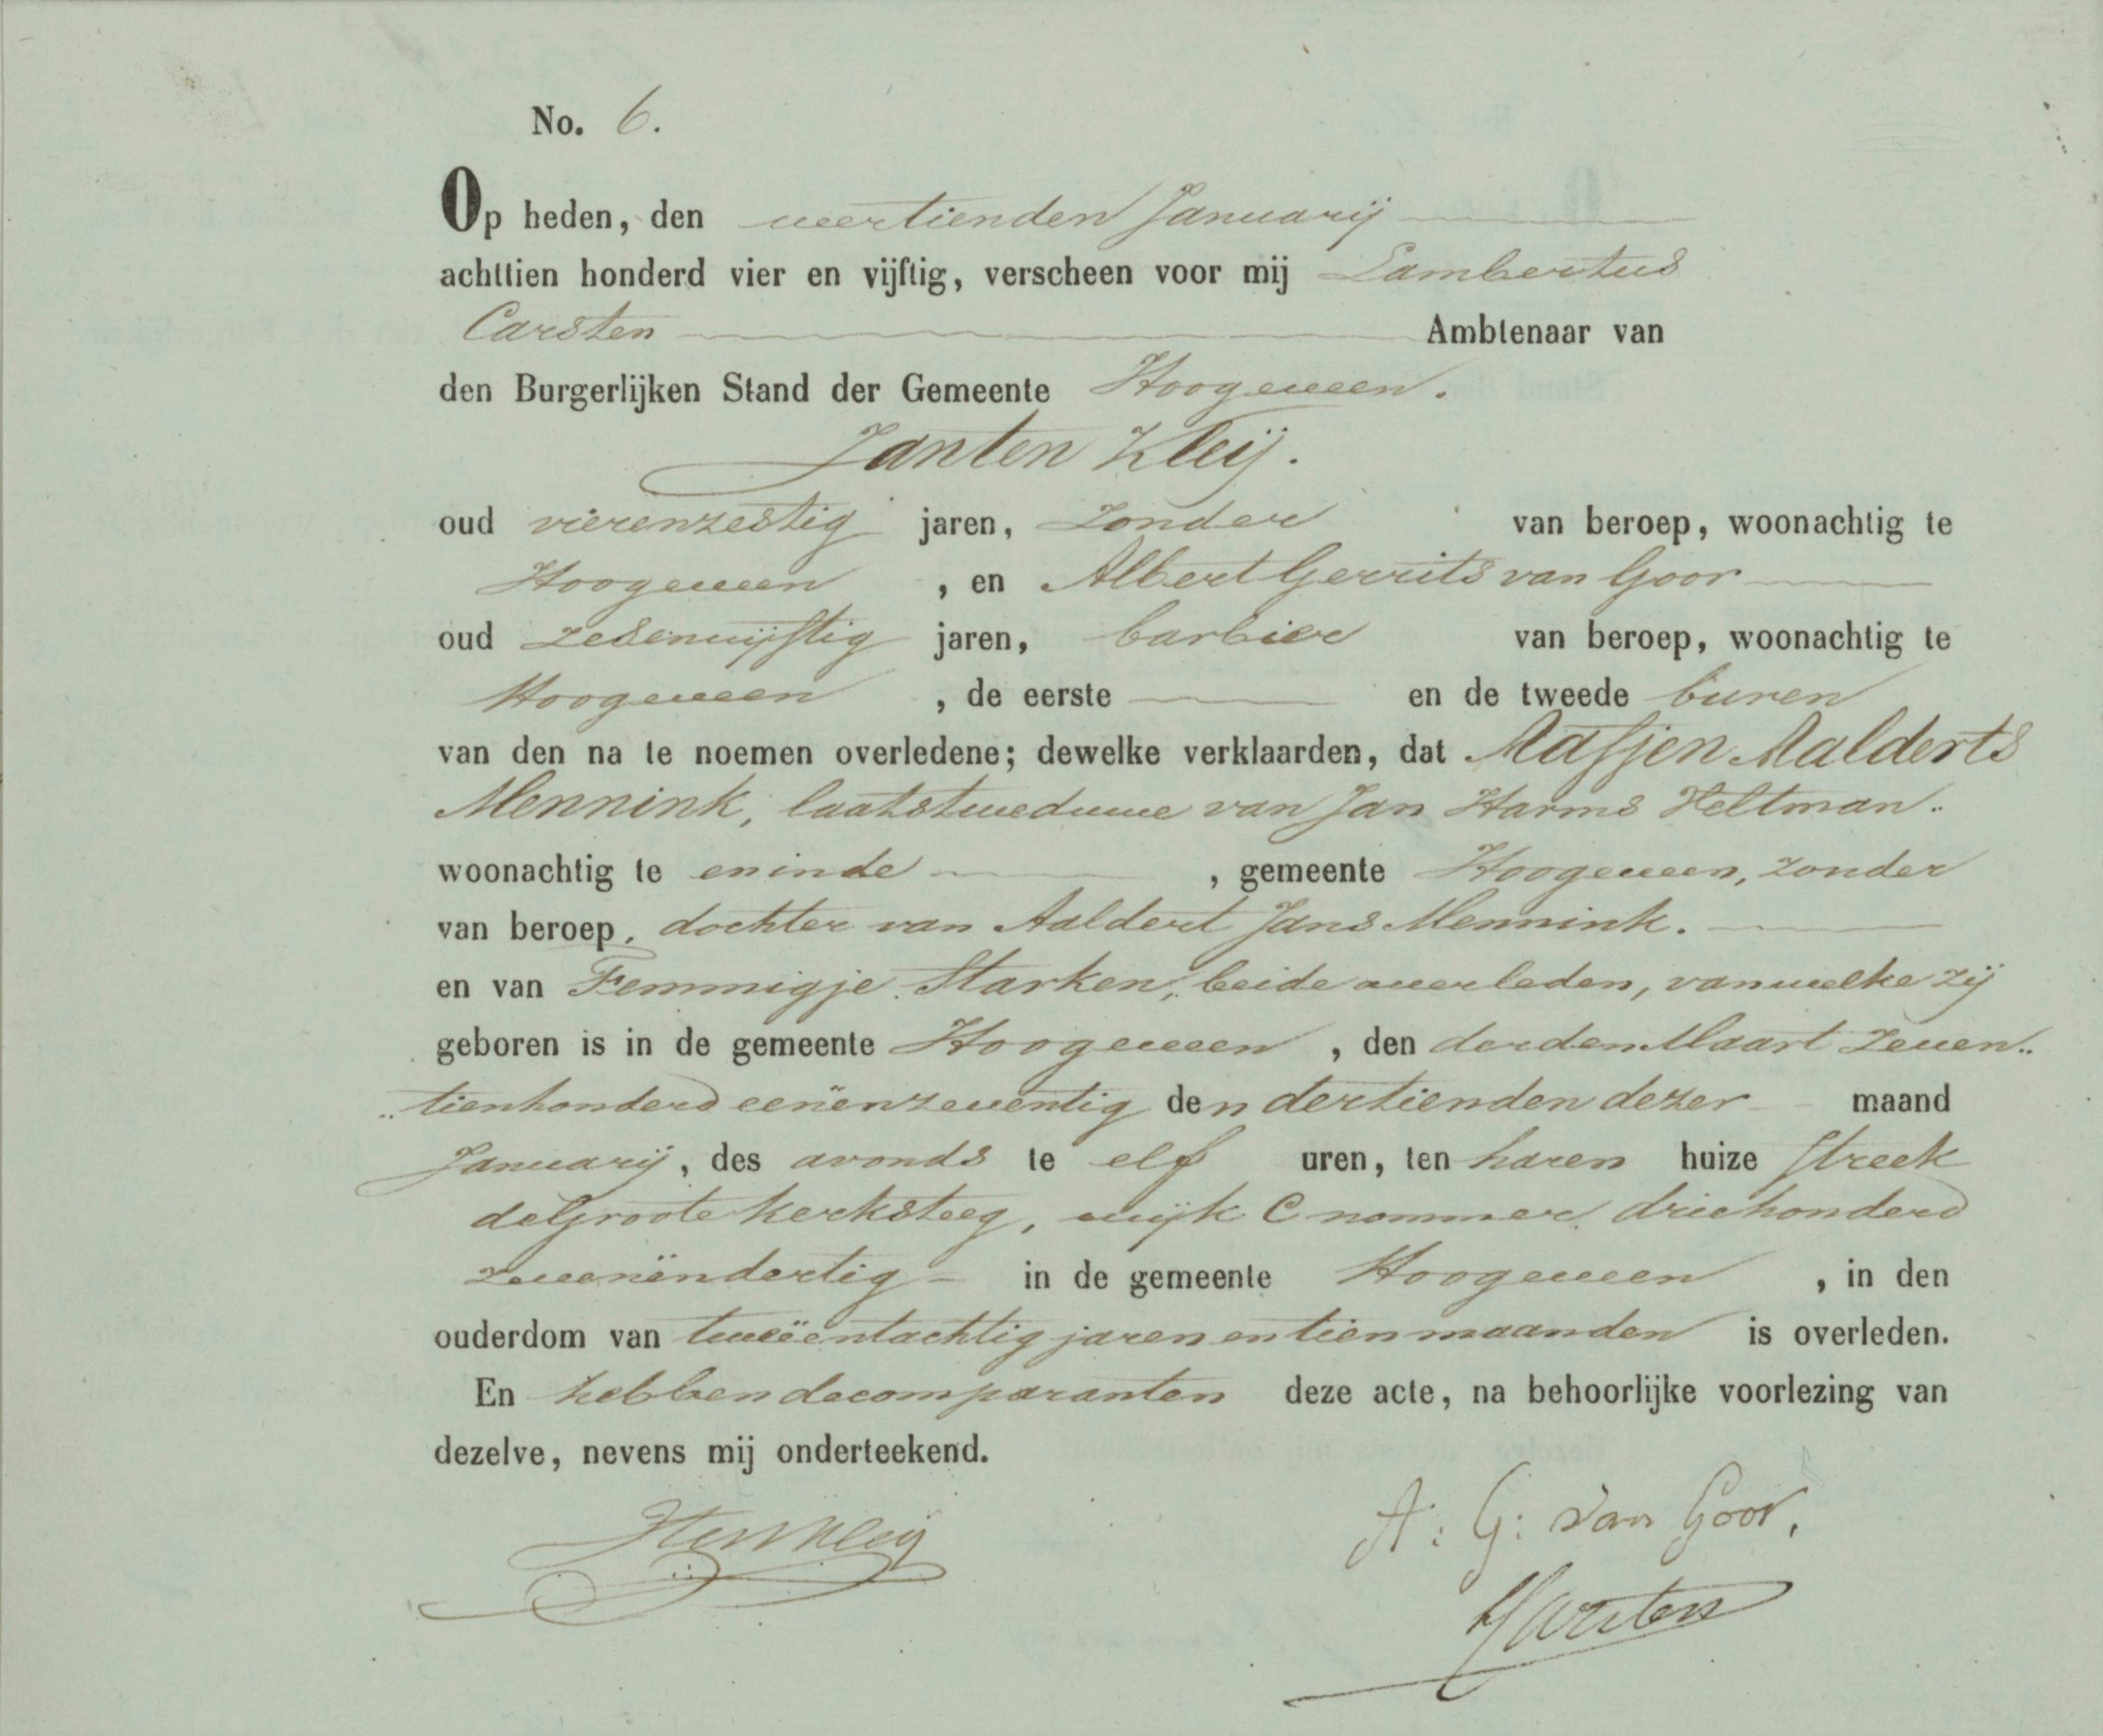 No. 6.
Op heden, den veertienden Januarij
achttien honderd vier en vijftig, verscheen voor mij Lambertus
Carsten Ambtenaar van
den Burgerlijken Stand der Gemeente Hoogeveen.
Janten Kleij.
oud vierenzestig jaren, zonder van beroep, woonachtig te
Hoogeveen , en Albert Gerrits van Goor
oud zesenvijftig jaren, barbier van beroep, woonachtig te
Hoogeveen , de eerste en de tweede buren
van den na te noemen overledene; dewelke verklaarden, dat Aasjen Aalderts
Mennink, laatst weduwe van Jan Harms Heltman..
woonachtig te en inde , gemeente Hoogeveen, zonder
van beroep, dochter van Aaldert Jans Mennink.
en van Femmigje Starken, beide overleden, van welke zij
geboren is in de gemeente Hoogeveen , den derden Maart zeven..
..tienhonderd eenënzeventig den dertienden dezer maand
Januarij, des avonds te elf uren, ten haren huize streek
de Groote kerksteeg, wijk C nommer driehonderd
zevenëndertig in de gemeente Hoogeveen , in den
ouderdom van tweeëntachtig jaren en tien maanden is overleden.
En hebben de comparanten deze acte, na behoorlijke voorlezing van
dezelve, nevens mij onderteekend.
Kleij
A: G: van Goor.
Carsten